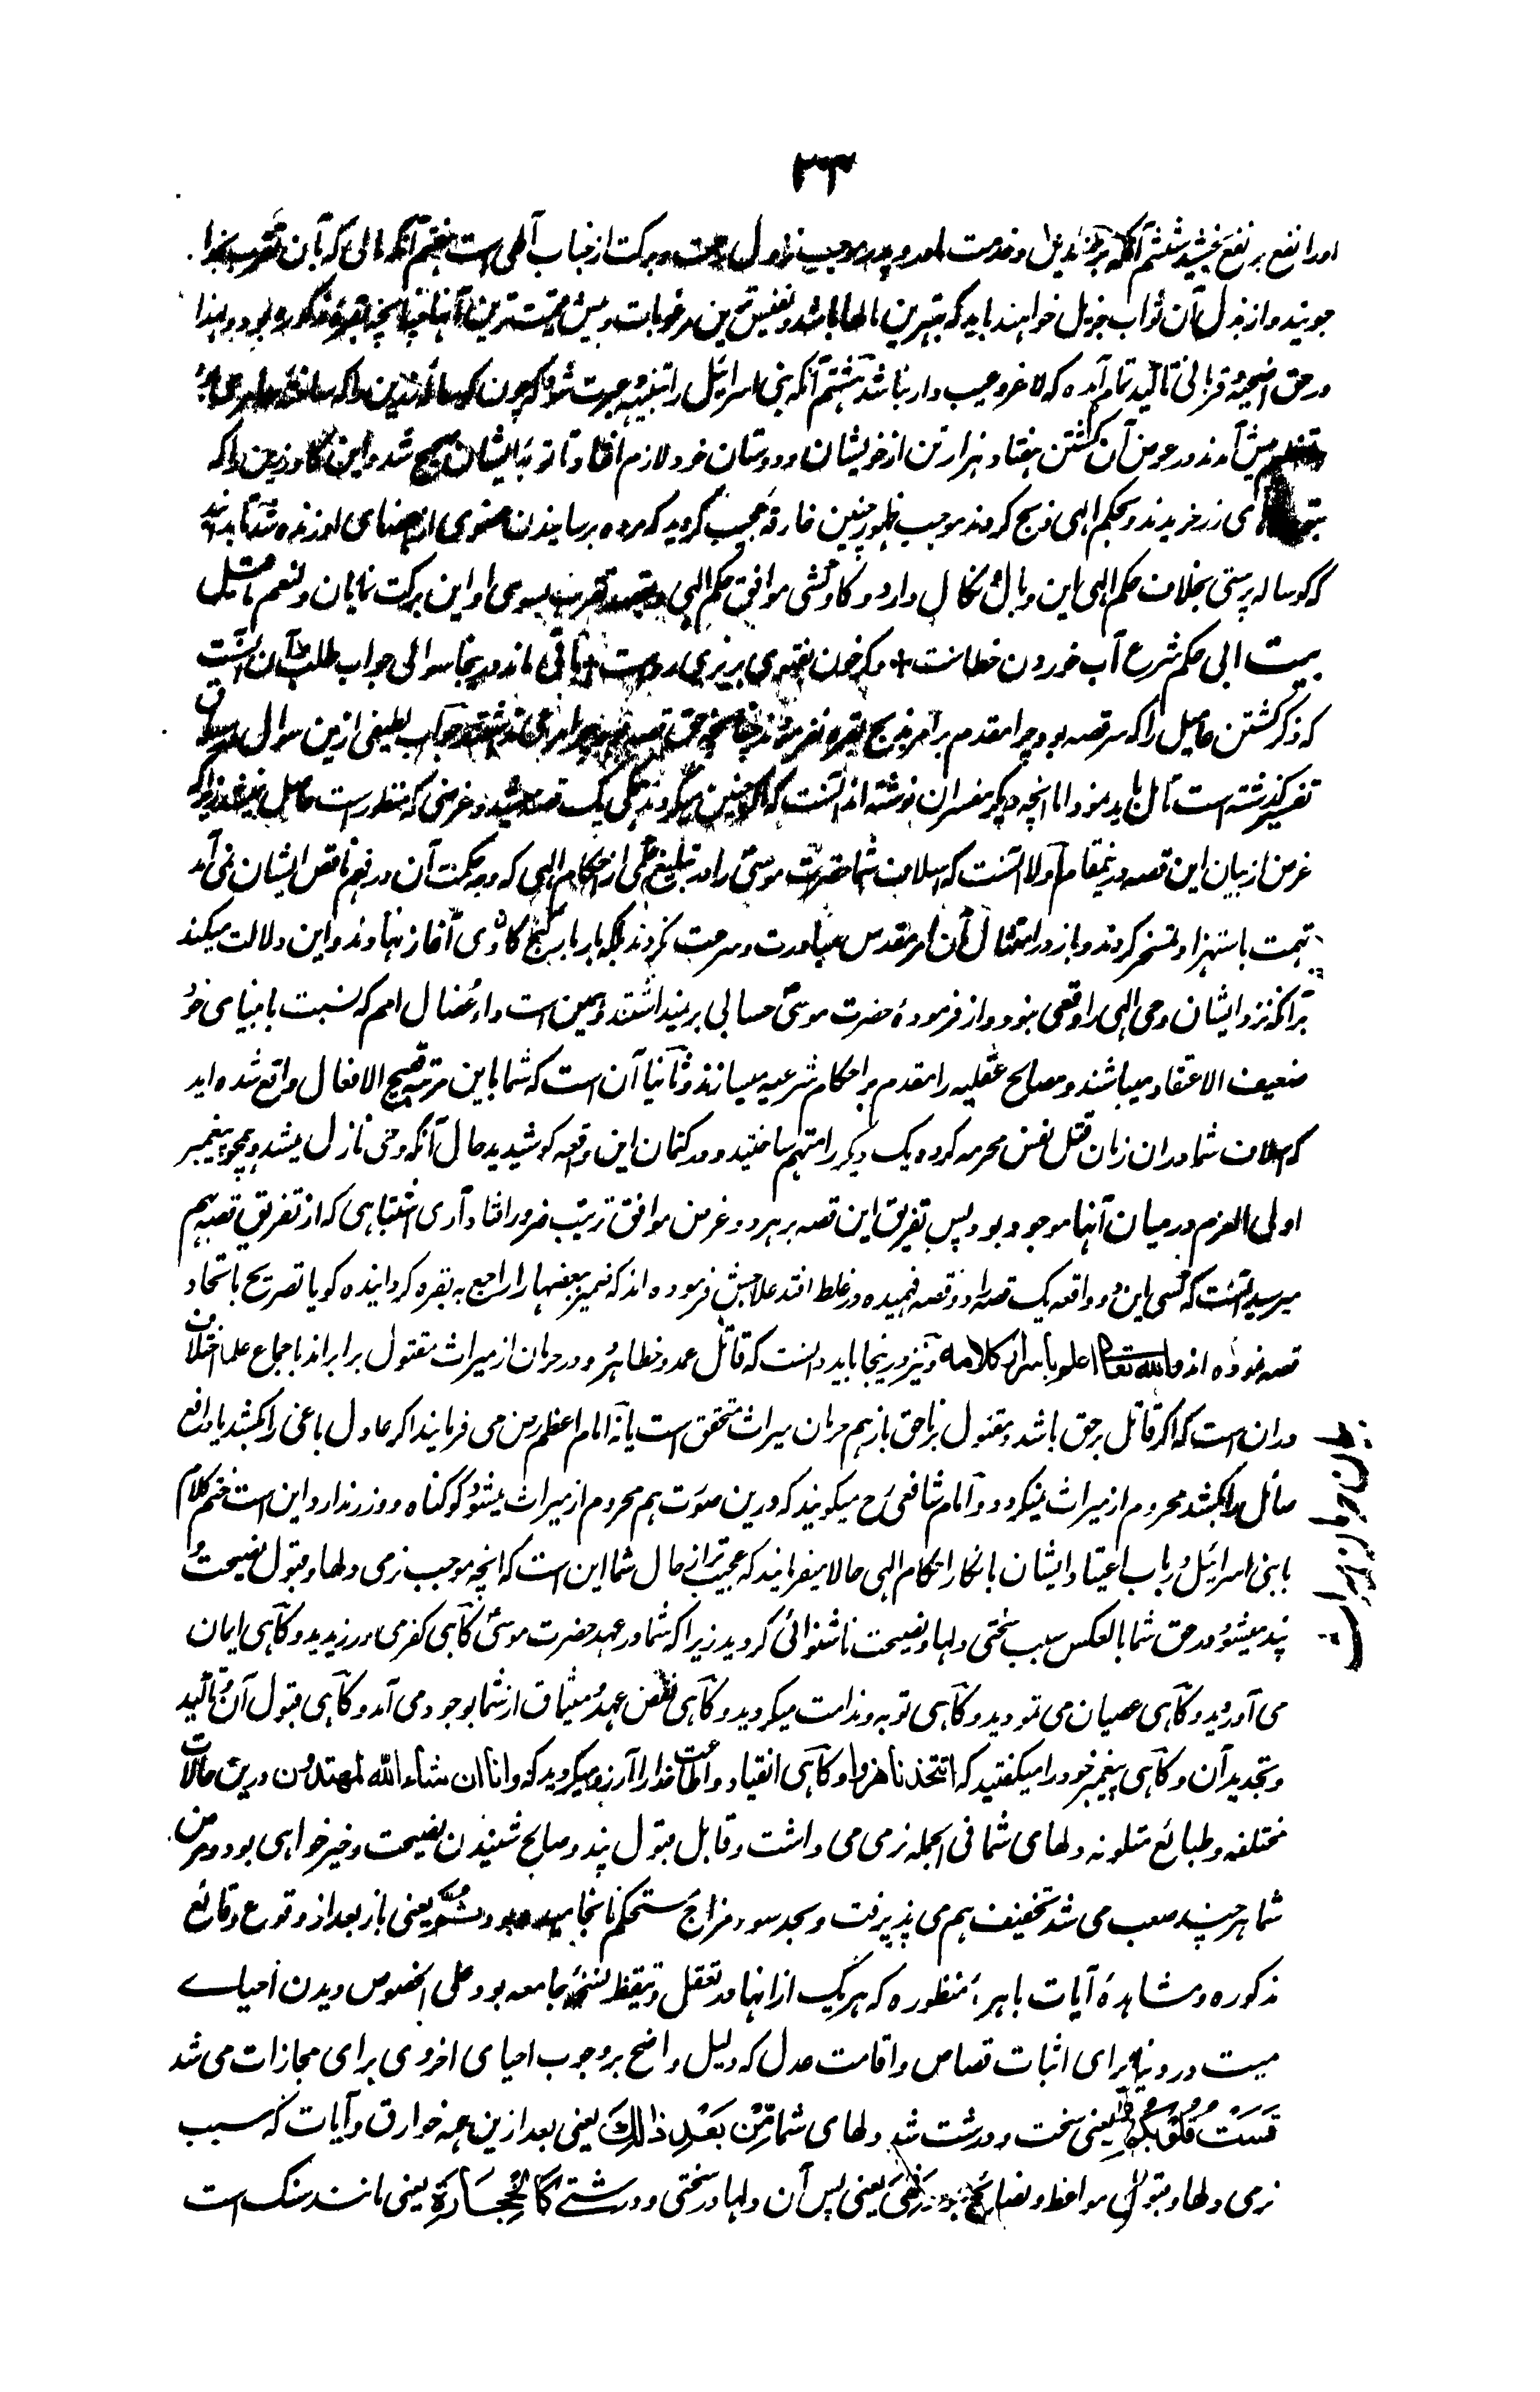 ۲۳
اورا نفع بر نفع بخشید ششم آنکه بر فرزندان و خدمت مادر و پدر موجب نزول رحمت و برکت از جناب آلهی است هفتم آنکه مالی که بآن تقرب بخدا
جویند و از بذل آن ثواب جزیل خواهند باید که بهترین مالها باشد و نفیس ترین مرغوبات و بیش قیمت ترین آنها چنانچه بقرهٔ مذکوره بود و لهذا
در حق اضحیه و قربانی تاکید تمام آمده که لاغر و عیب دار نباشد هشتم آنکه بنی اسرائیل را تنبیه و عبرت شود که چون گوساله زرین را که ساختهٔ سامری بود
بتعظیم پیش آمدند در عوض آن کشتن هفتاد هزار تن از خویشان و دوستان خود لازم افتاد تا توبهٔ ایشان صحیح شد و این گاو زرین را که
ی زر خریدند و بحکم الهی ذبح کردند موجب ظهور چنین خارقهٔ عجیب گردید که مرده برسانیدن عضوی از اعضای او زنده شد تا بدانند
که گوساله پرستی بخلاف حکم الهی این وبال و نکال دارد و گاوکشی موافق حکم الهی و بقصد تقرب بسوی او این برکت نمایان و لنعم ما قیل
بیت ابی حکم شرع آب خوردن خطاست + وگر خون بفتوی بریزی رواست + باقی ماند درینجا سوالی جواب طلب و آن اینست
که ذکر کشتن عامیل را که سر قصه بود چرا مقدم بر امر بذبح بقره نفرمودند چنانچه حق قصه بود چرا مرعی نداشتند جواب لطیفی ازین سوال در سیاق
تفسیر گذشته است تامل باید نمود اما انچه دیگر مفسران نوشته اند اینست که اگر چنین میکردند همگی یک قصه میشد و غرضی که منظور است حاصل نمیشد زیرا که
غرض از بیان این قصه درینمقام اولا اینست که اسلاف شما حضرت موسیٰ را در تبلیغ حکمی از احکام الهی که وجه حکمت آن در فهم ناقص ایشان نمی آمد
تهمت باستهزا و تمسخر کردند و باز در امتثال آن امر مقدس مبادرت و سرعت نکردند بلکه بار بار بکج کاوی آغاز نهادند و این دلالت میکند
برآنکه نزد ایشان وحی الهی را وقعی نبود و از فرمودهٔ حضرت موسیٰ حسابی برنمیداشتند و همین است داء عضال امم که نسبت بانبیای خود
ضعیف الاعتقاد میباشند و مصالح عقلیه را مقدم بر احکام شرعیه میسازند و ثانیا آن است که شما باین مرتبه قبیح الافعال واقع شده اید
که اسلاف شما دران زمان قتل نفس محرمه کرده یک دیگر را متهم ساختید و در کتمان این واقعه کوشیدید حال آنکه وحی نازل میشد و همچو پیغمبر
اولی العزم درمیان آنها موجود بود پس تفریق این قصه بر هر دو غرض موافق ترتیب ضرور افتاد آری اشتباهی که از تفریق قصه بهم
میرسید اینست که کسی این دو واقعه یک قصه را دو قصه فهمیده در غلط افتد علاجش فرموده اند که ضمیر ببعضها را راجع به بقره گردانیده گویا تصریح باتحاد
قصه نموده اند والله تعالیٰ اعلم باسرار کلامه و نیز درینجا باید دانست که قاتل عمد و خطا هر دو در حرمان از میراث مقتول برابراند باجماع علما اختلاف
دران است که اگر قاتل برحق باشد و مقتول ناحق باز هم حرمان میراث متحقق است یا نه امام اعظم رض می فرمایند اگر عادل باغی را بکشد یا دافع
صائل را بکشد محروم از میراث نمیگردد و امام شافعی رح میگویند که درین صورت هم محروم از میراث میشود گو گناه و وزر ندارد این است ختم کلام
با بنی اسرائیل در باب اعتیاد ایشان بانکار احکام الهی حالا میفرمایند که عجیب تر از حال شما این است که انچه موجب نرمی دلها و قبول نصیحت و
پند میشود در حق شما بالعکس سبب سختی دلها و نصیحت ناشنوائی گردید زیرا که شما در عهد حضرت موسیٰ گاهی کفر می ورزیدید و گاهی ایمان
می آوردید و گاهی عصیان می نمودید و گاهی توبه و ندامت میکردید و گاهی نقض عهد و میثاق از شما بوجود می آمد و گاهی قبول آن و تاکید
و تجدید آن و گاهی پیغمبر خود را میگفتید که اتتخذنا هزوا و گاهی انقیاد و اطاعت خدا را آرزو میکردید که وانا ان شاء الله لمهتدون درین حالات
مختلفه و طبائع متلونه دلهای شما فی الجمله نرمی می داشت و قابل قبول پند و صالح شنیدن نصیحت و خیرخواهی بود و مرض
شما هر چند صعب می شد تخفیف هم می پذیرفت و بحد سوء مزاج مستحکم نانجامیده بود ثُمَّ یعنی باز بعد از وقوع وقائع
مذکوره و مشاهدهٔ آیات باهرهٔ منظوره که هر یک ازانها در تعقل و تیقظ نسخهٔ جامعه بود علی الخصوص دیدن احیاے
میت در دنیا برای اثبات قصاص و اقامت عدل که دلیل واضح بر وجوب احیای اخروی برای مجازات می شد
قَسَتْ قُلُوْبُكُمْ یعنی سخت و درشت شد دلهای شما مِّنْ بَعْدِ ذَالِكَ یعنی بعد ازین همه خوارق و آیات که سبب
نرمی دلها و قبول مواعظ و نصائح بود فَهِیَ یعنی پس آن دلها در سختی و درشتے كَالْحِجَارَةِ یعنی مانند سنگ است
بیان حرمان از میراث